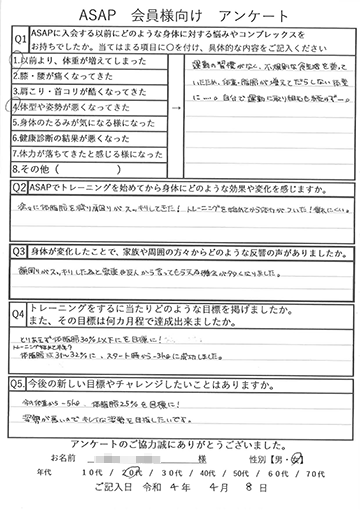 ASAP 会員様向け アンケート
Q1 ASAPに入会する以前にどのような身体に対する悩みやコンプレックスを
お持ちでしたか。当てはまる項目に〇を付け、具体的な内容をご記入ください
1.以前より、体重が増えてしまった
2.膝・腰が痛くなってきた
3.肩こり・首コリが酷くなってきた
4.体型や姿勢が悪くなってきた
5.身体のたるみが気になる様になった
6.健康診断の結果が悪くなった
7.体力が落ちてきたと感じる様になった
8.その他( )
→
運動の習慣がなく、不規則な食生活を送って
いたため、体重・脂肪が増えてだらしない体型
に…。自分で運動に取り組むも続かず…。
Q2 ASAPでトレーニングを始めてから身体にどのような効果や変化を感じますか。
次々に体脂肪を減り肩回りがスッキリしてきた! トレーニングを始めてから体力がついた!
Q3 身体が変化したことで、家族や周囲の方々からどのような反響の声がありましたか。
顔周りがスッキリしたねと 友人から言ってもらえる機会が多くなりました。
Q4 トレーニングをするに当たりどのような目標を掲げましたか。
また、その目標は何カ月程で達成出来ましたか。
とりあえず体脂肪30%以下にを目標に!
トレーニング始めて
体脂肪は31~32%に、スタート時から-3kgに成功しました。
Q5. 今後の新しい目標やチャレンジしたいことはありますか。
今の体重から-5kg、体脂肪25%を目標に!
姿勢が悪いのでキレイな姿勢を目指したいです。
アンケートのご協力誠にありがとうございました。
お名前 様 性別【男・女】
年代 10代 / 20代 / 30代 / 40代 / 50代 / 60代 / 70代
ご記入日 令和 4 年 4 月 8 日